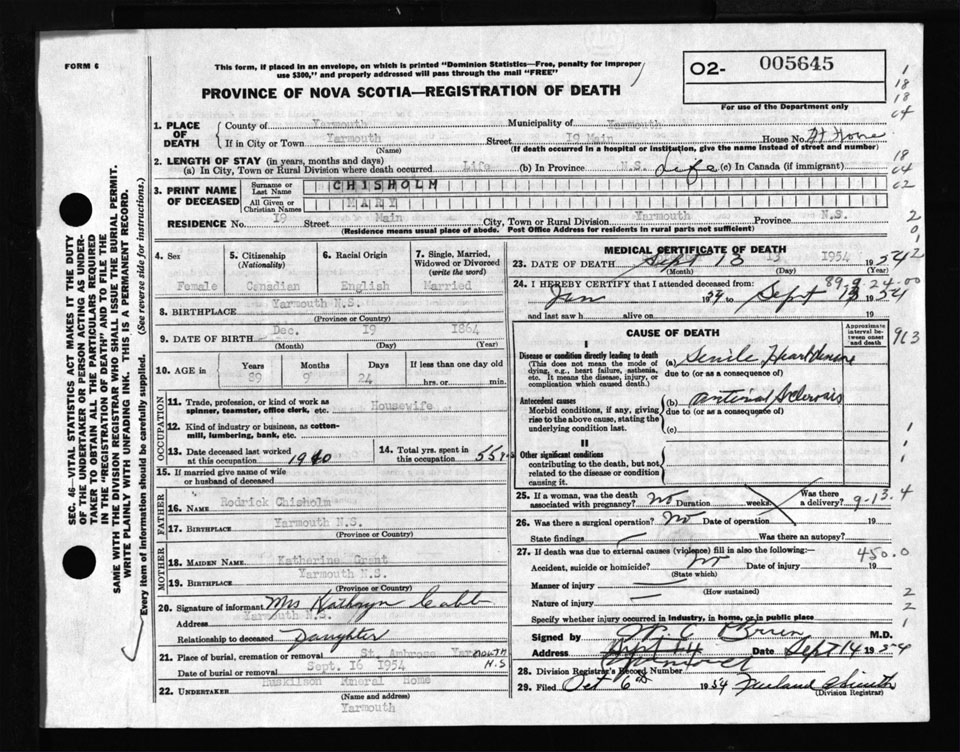 FORM 6
This form, if placed in an envelope, on which is printed "Dominion Statistics—Free, penalty for improper
use $300," and properly addressed will pass through the mail "FREE"
PROVINCE OF NOVA SCOTIA—REGISTRATION OF DEATH
02- 005645
For use of the Department only
1. PLACE OF DEATH
County of Yarmouth Municipality of Yarmouth
If in City or Town Yarmouth Street 19 Main House No. At Home
(Name) (If death occurred in a hospital or institution, give the name instead of street and number)
2. LENGTH OF STAY (in years, months and days)
(a) In City, Town or Rural Division where death occurred Life (b) In Province N.S. Life (c) In Canada (if immigrant)
3. PRINT NAME OF DECEASED
Surname or Last Name CHISHOLM
All Given or Christian Names MARY
RESIDENCE No. 19 Street Main City, Town or Rural Division Yarmouth Province N.S.
(Residence means usual place of abode. Post Office Address for residents in rural parts not sufficient)
4. Sex Female
5. Citizenship (Nationality) Canadian
6. Racial Origin English
7. Single, Married, Widowed or Divorced (write the word) Married
8. BIRTHPLACE Yarmouth N.S.
(Province or Country)
9. DATE OF BIRTH Dec. 19 1864
(Month) (Day) (Year)
10. AGE in Years 89 Months 8 Days 24 If less than one day old
hrs. or min.
OCCUPATION
11. Trade, profession, or kind of work as
spinner, teamster, office clerk, etc. Housewife
12. Kind of industry or business, as cotton-
mill, lumbering, bank, etc.
13. Date deceased last worked
at this occupation 1940
14. Total yrs. spent in
this occupation 55 yrs
15. If married give name of wife
or husband of deceased
FATHER
16. NAME Rodrick Chisholm
17. BIRTHPLACE Yarmouth N.S.
(Province or Country)
MOTHER
18. MAIDEN NAME Katherine Grant
19. BIRTHPLACE Yarmouth N.S.
(Province or Country)
20. Signature of informant Mrs Kathryn
Address Yarmouth N.S.
Relationship to deceased Daughter
21. Place of burial, cremation or removal St. Ambrose Yarmouth N.S
Date of burial or removal Sept. 16 1954
22. UNDERTAKER Huskilson Home
(Name and address)
Yarmouth
MEDICAL CERTIFICATE OF DEATH
23. DATE OF DEATH Sept 13 13 1954 1954
(Month) (Day) (Year)
24. I HEREBY CERTIFY that I attended deceased from:
Jan 1954 to Sept 13 1954
and last saw h alive on 19
CAUSE OF DEATH
Approximate interval between onset and death
I
Disease or condition directly leading to death
(This does not mean the mode of
dying, e.g., heart failure, asthenia,
etc. It means the disease, injury, or
complication which caused death.)
(a) Senile Heart Disease
due to (or as a consequence of)
Antecedent causes
Morbid conditions, if any, giving
rise to the above cause, stating the
underlying condition last.
(b)
due to (or as a consequence of)
(c)
II
Other significant conditions
contributing to the death, but not
related to the disease or condition
causing it.
25. If a woman, was the death
associated with pregnancy? No Duration weeks Was there
a delivery?
26. Was there a surgical operation? No Date of operation 19
State findings Was there an autopsy?
27. If death was due to external causes (violence) fill in also the following:—
Accident, suicide or homicide? no Date of injury 19
(State which)
Manner of injury
(How sustained)
Nature of injury
Specify whether injury occurred in industry, in home, or in public place
Signed by M.D.
Address Date Sept 14 1954
28. Division Registrar's Record Number
29. Filed Oct 6th 1954
(Division Registrar)
SEC. 46—VITAL STATISTICS ACT MAKES IT THE DUTY
OF THE UNDERTAKER OR PERSON ACTING AS UNDER-
TAKER TO OBTAIN ALL THE PARTICULARS REQUIRED
IN THE "REGISTRATION OF DEATH" AND TO FILE THE
SAME WITH THE DIVISION REGISTRAR WHO SHALL ISSUE THE BURIAL PERMIT.
WRITE PLAINLY WITH UNFADING INK. THIS IS A PERMANENT RECORD.
Every item of information should be carefully supplied. (See reverse side for instructions.)
1
18
18
04
18
04
02
2
0
1
2
913
9-13.4
450.0
2
2